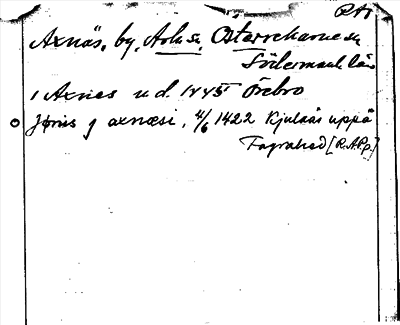 RA
Axnäs, by, ArlaSn, Österrekarne hd
Södermanl. län
i Axnes u.d. 1445 Örebro
Jønis j axnæsi, 4/6 1422 Kjulaås uppå
Fograhed [R.A.P.p.]